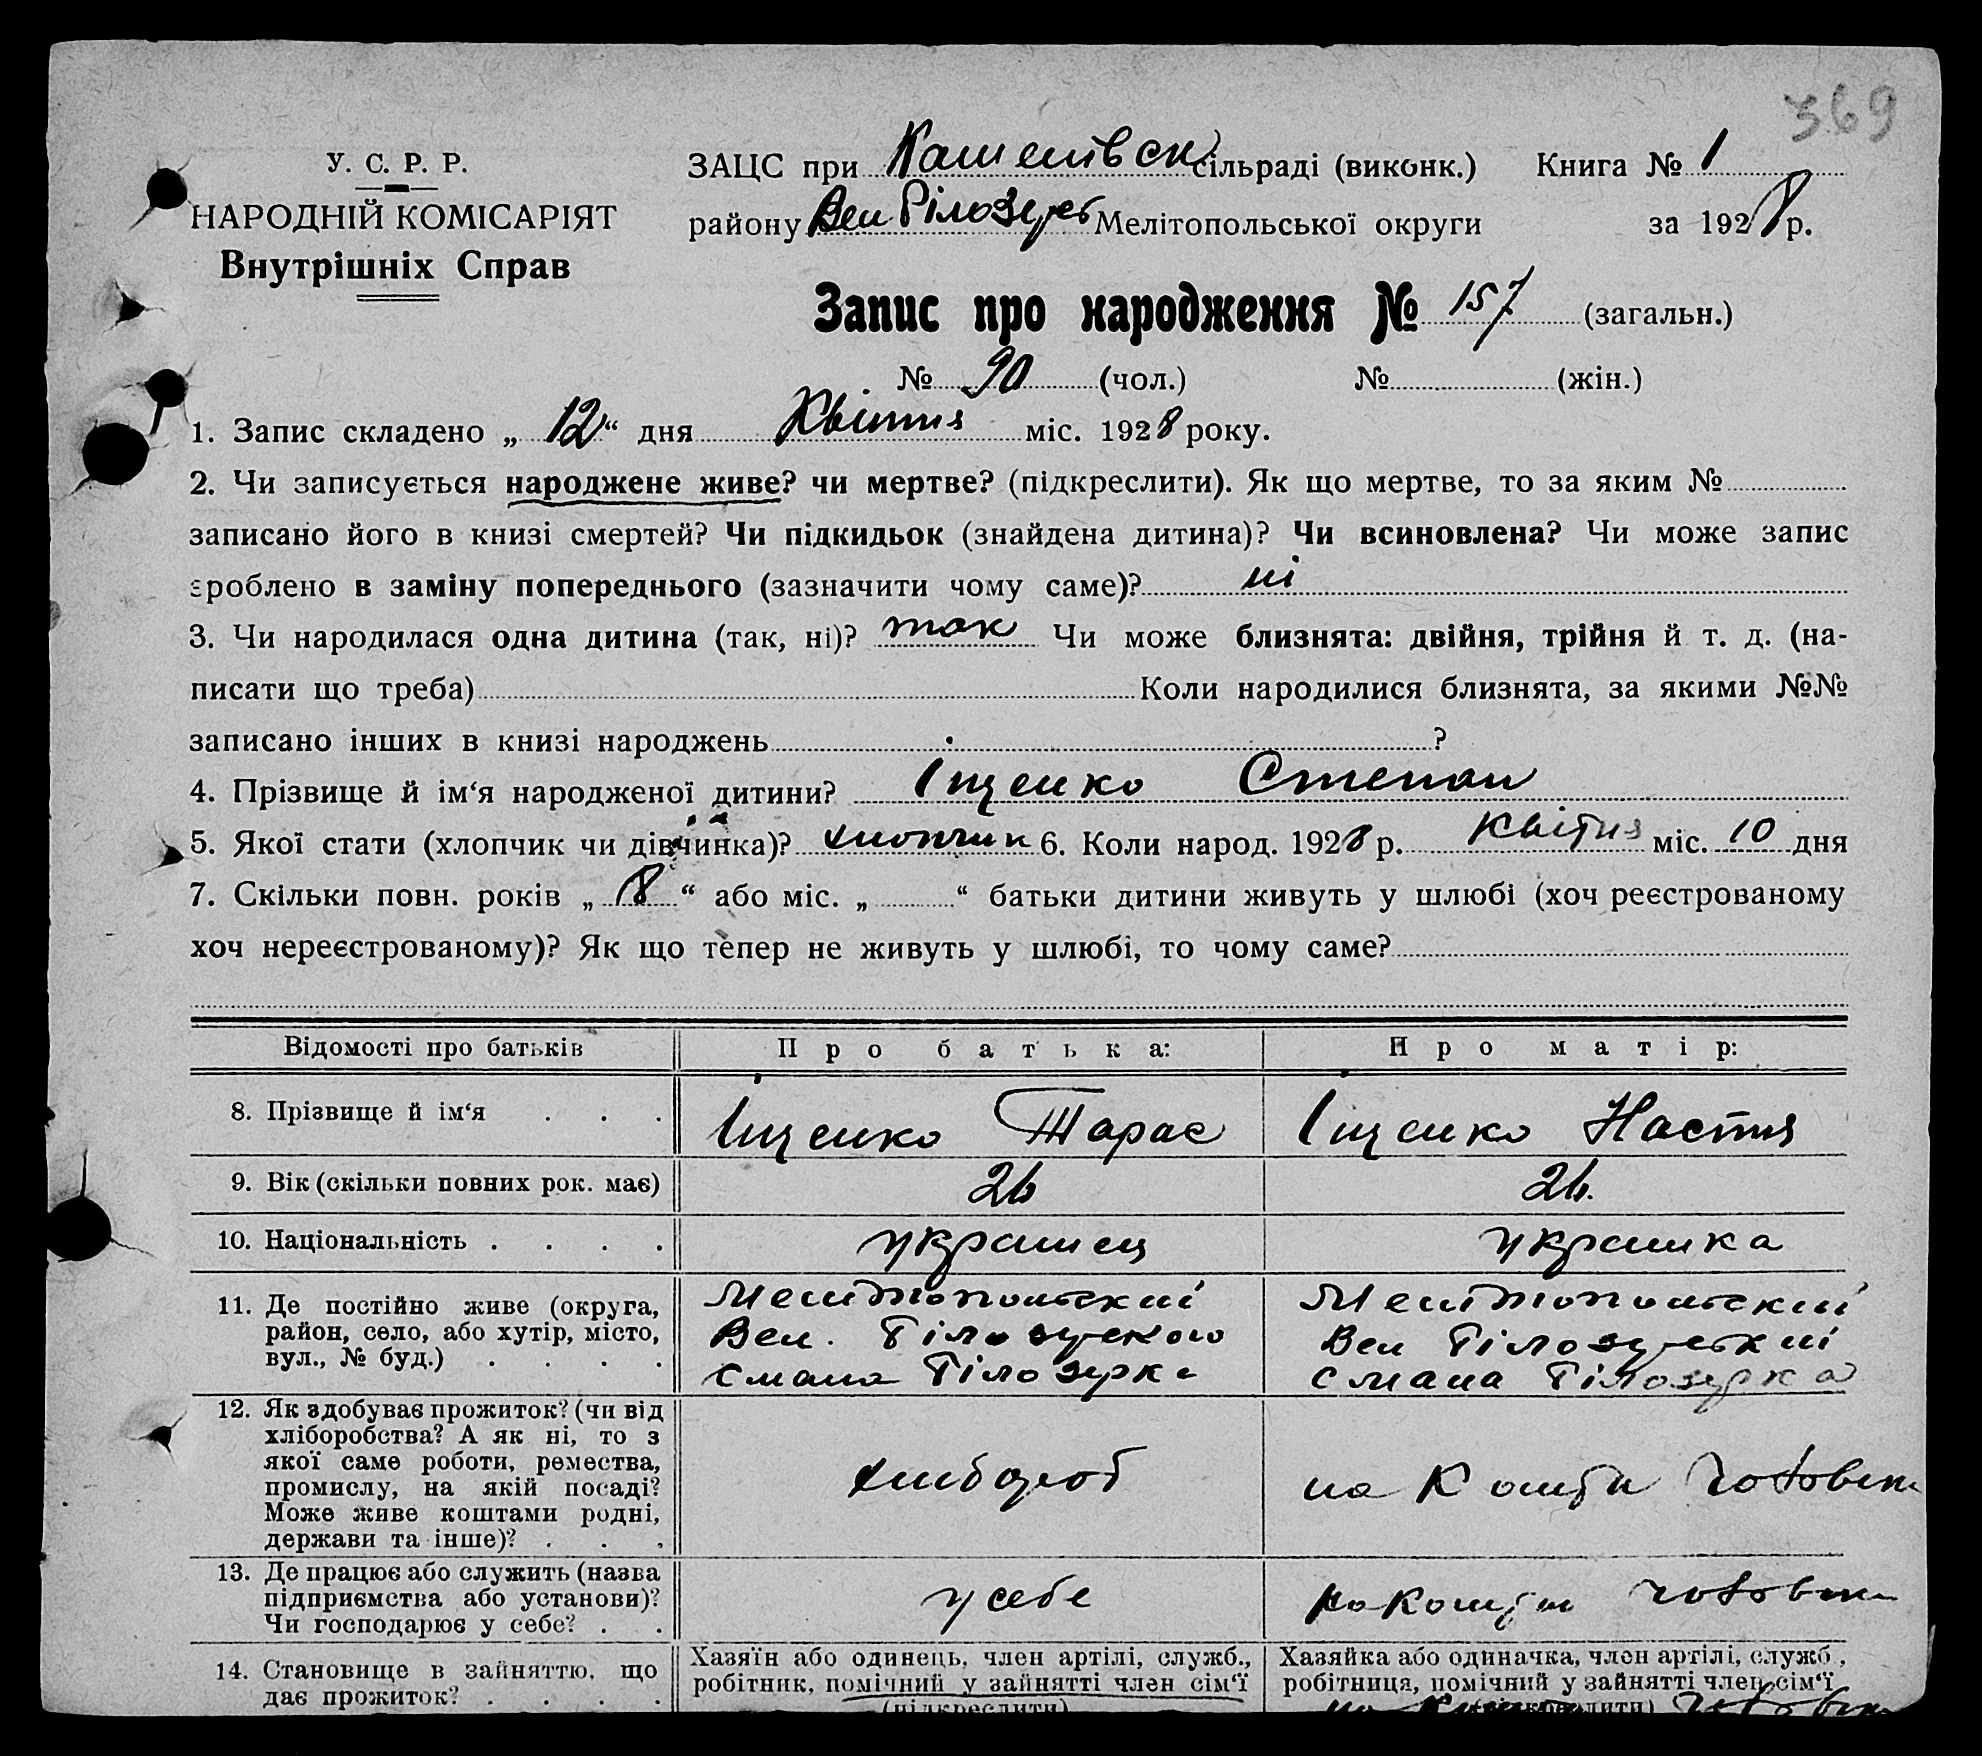 369
У. С. Р. Р.
НАРОДНІЙ КОМІСАРІЯТ
Внутрішніх Справ
ЗАЦС при сільраді (виконк.) Книга № 1
району Вел Білозерс Мелітопольської округи за 1928 р.
Запис про народження № 157 (загальн.)
№ 90 (чол.) № (жін.)
1. Запис складено „ 12 “ дня Квітня міс. 1928 року.
2. Чи записується народжене живе? чи мертве? (підкреслити). Як що мертве, то за яким №
записано його в книзі смертей? Чи підкидьок (знайдена дитина)? Чи всиновлена? Чи може запис
зроблено в заміну попереднього (зазначити чому саме)? ні
3. Чи народилася одна дитина (так, ні)? так Чи може близнята: двійня, трійня й т. д. (на-
писати що треба) Коли народилися близнята, за якими №№
записано інших в книзі народжень ?
4. Прізвище й ім‘я народженої дитини? Іщенко Степан
5. Якої стати (хлопчик чи дівчинка)? хлопчик 6. Коли народ. 1928 р. Квітня міс. 10 дня
7. Скільки повн. років „ 8 “ або міс. „ “ батьки дитини живуть у шлюбі (хоч реєстрованому
хоч нереєстрованому)? Як що тепер не живуть у шлюбі, то чому саме?
Відомості про батьків Про батька: Про матір:
8. Прізвище й ім‘я . . . Іщенко Тарас Іщенко Настя
9. Вік (скільки повних рок. має) 26 26.
10. Національність . . . . українец українка
11. Де постійно живе (округа,
район, село, або хутір, місто,
вул., № буд.) . . . .
Мелитопольский
Вел. Білозерского
с мала Білозерка
Мелитопольский
Вел Білозерский
с мала Білозерка
12. Як здобуває прожиток? (чи від
хліборобства? А як ні, то з
якої саме роботи, ремества,
промислу, на якій посаді?
Може живе коштами родні,
держави та інше)? . . .
хлибороб
на кошти чоловіка
13. Де працює або служить (назва
підприємства або установи)?
Чи господарює у себе? . .
у себе
на кошти чоловіка
14. Становище в зайняттю, що
дає прожиток? . . . .
Хазяїн або одинець, член артілі, служб.,
робітник, помічний у зайнятті член сім‘ї
(підкреслити)
Хазяйка або одиначка, член артілі, служб.,
робітниця, помічний у зайнятті член сім‘ї
(підкреслити)
на кошти чоловіка